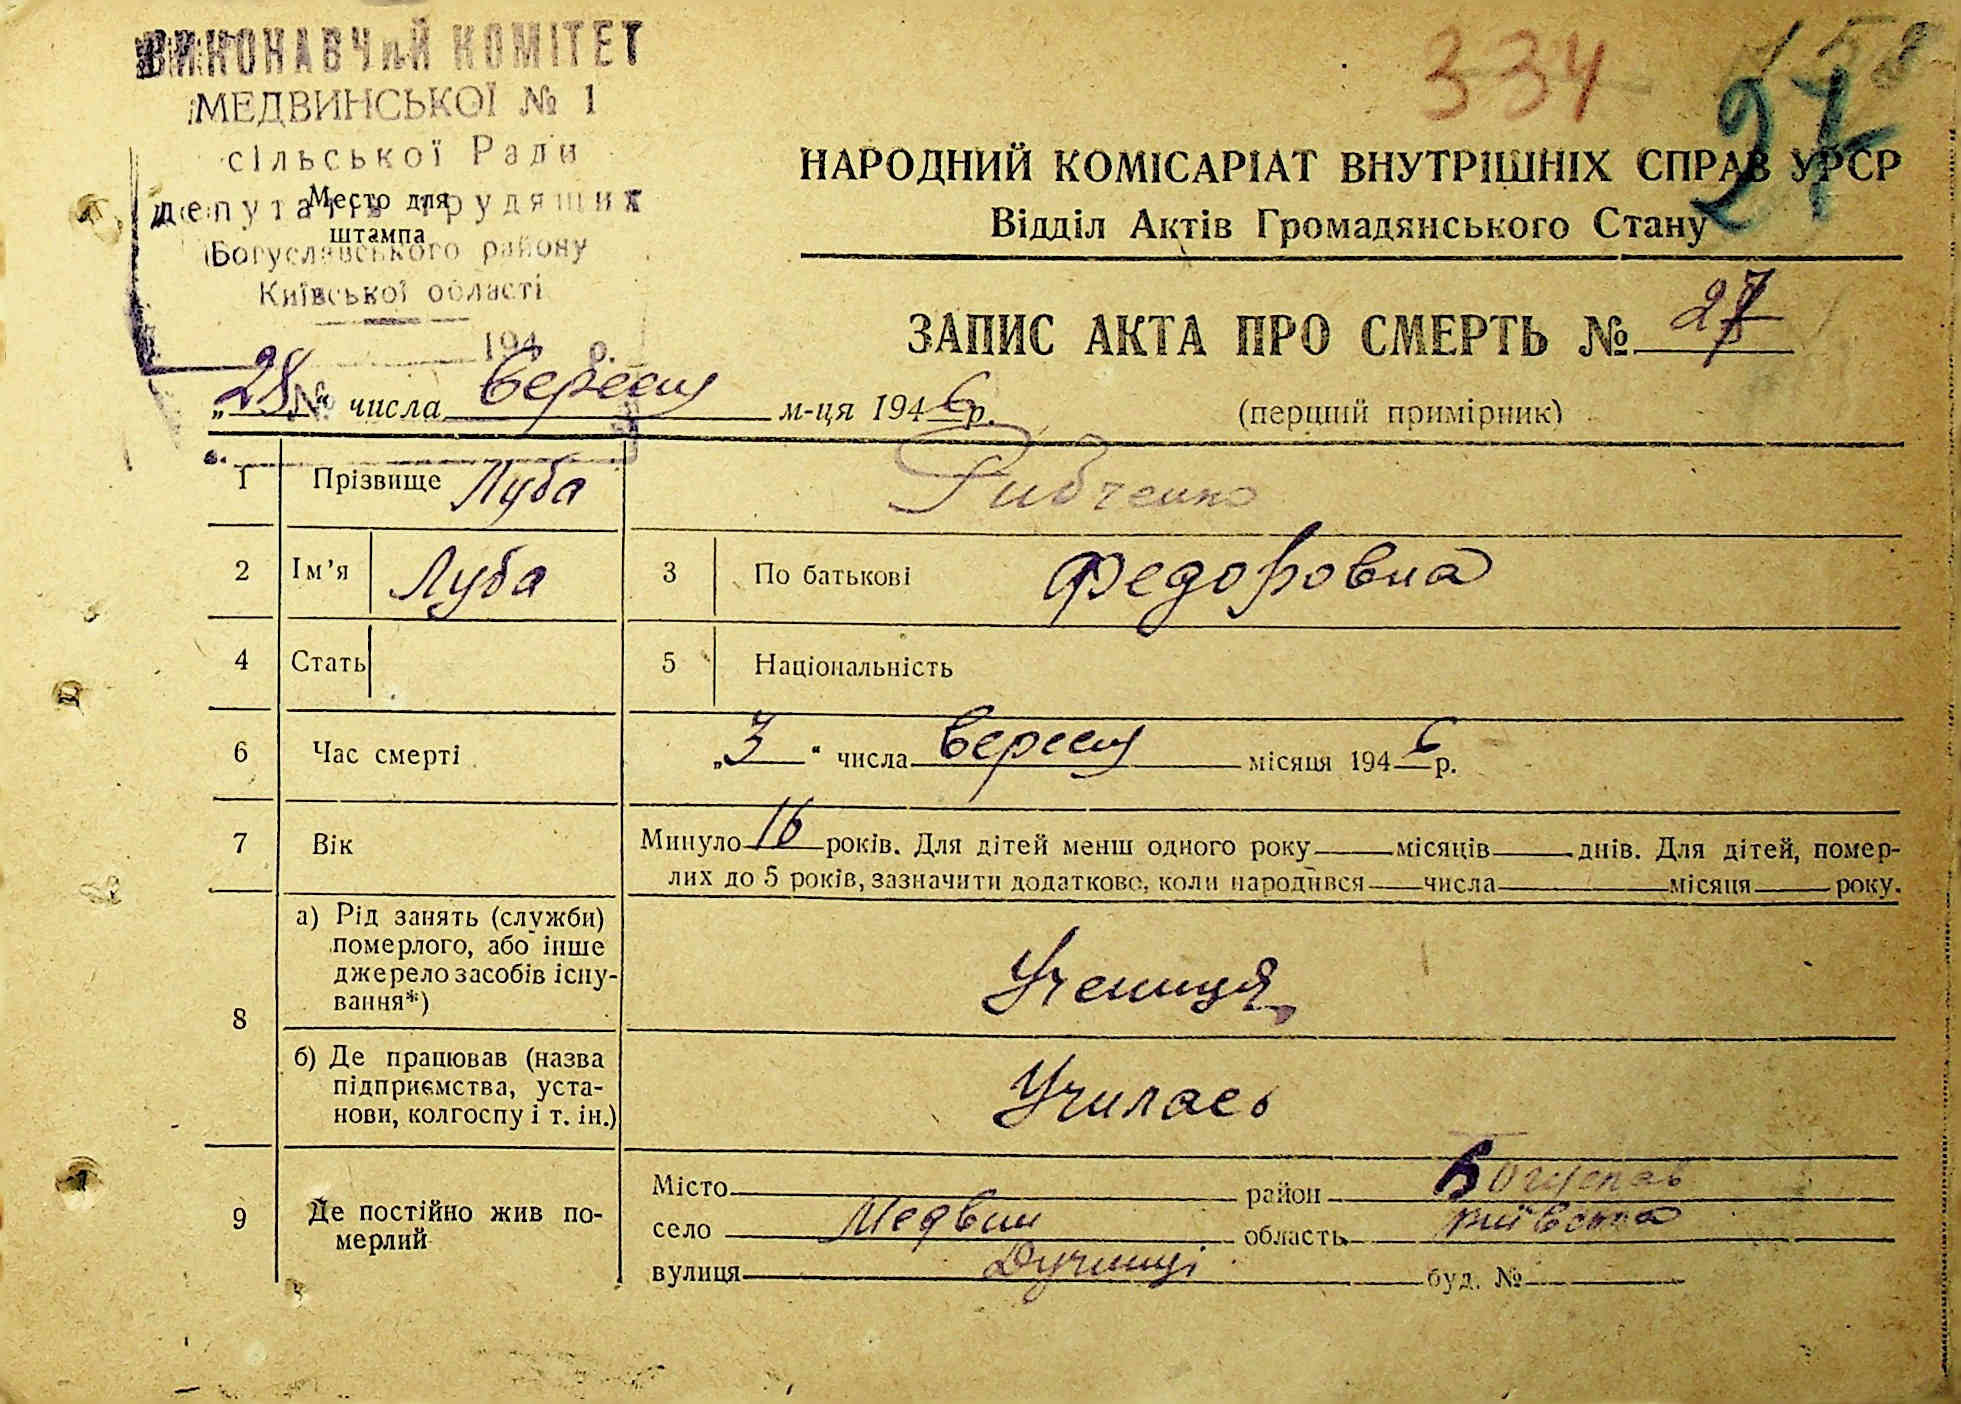 ВИКОНАВЧИЙ КОМІТЕТ
МЕДВИНСЬКОЇ № 1
сільської Ради
депутатів трудящих
Место для
штампа
Богуславського району
Київської області
194 р.
334
158
27
НАРОДНИЙ КОМІСАРІАТ ВНУТРІШНІХ СПРАВ УРСР
Відділ Актів Громадянського Стану
ЗАПИС АКТА ПРО СМЕРТЬ № 27
„28“ числа вересня м-ця 1946 р.
(перший примірник)
1 Прізвище Луба Рибченко
2 Ім’я Луба 3 По батькові Федоровна
4 Стать 5 Національність
6 Час смерті „3“ числа вересня місяця 1946 р.
7 Вік Минуло 16 років. Для дітей менш одного року місяців днів. Для дітей, помер-
лих до 5 років, зазначити додатково, коли народився числа місяця року.
8 а) Рід занять (служби)
померлого, або інше
джерело засобів існу-
вання*)
Учениця
б) Де працював (назва
підприємства, уста-
нови, колгоспу і т. ін.)
Училась
9 Де постійно жив по-
мерлий
Місто район Богуслав
село Медвин область Київська
вулиця буд. №